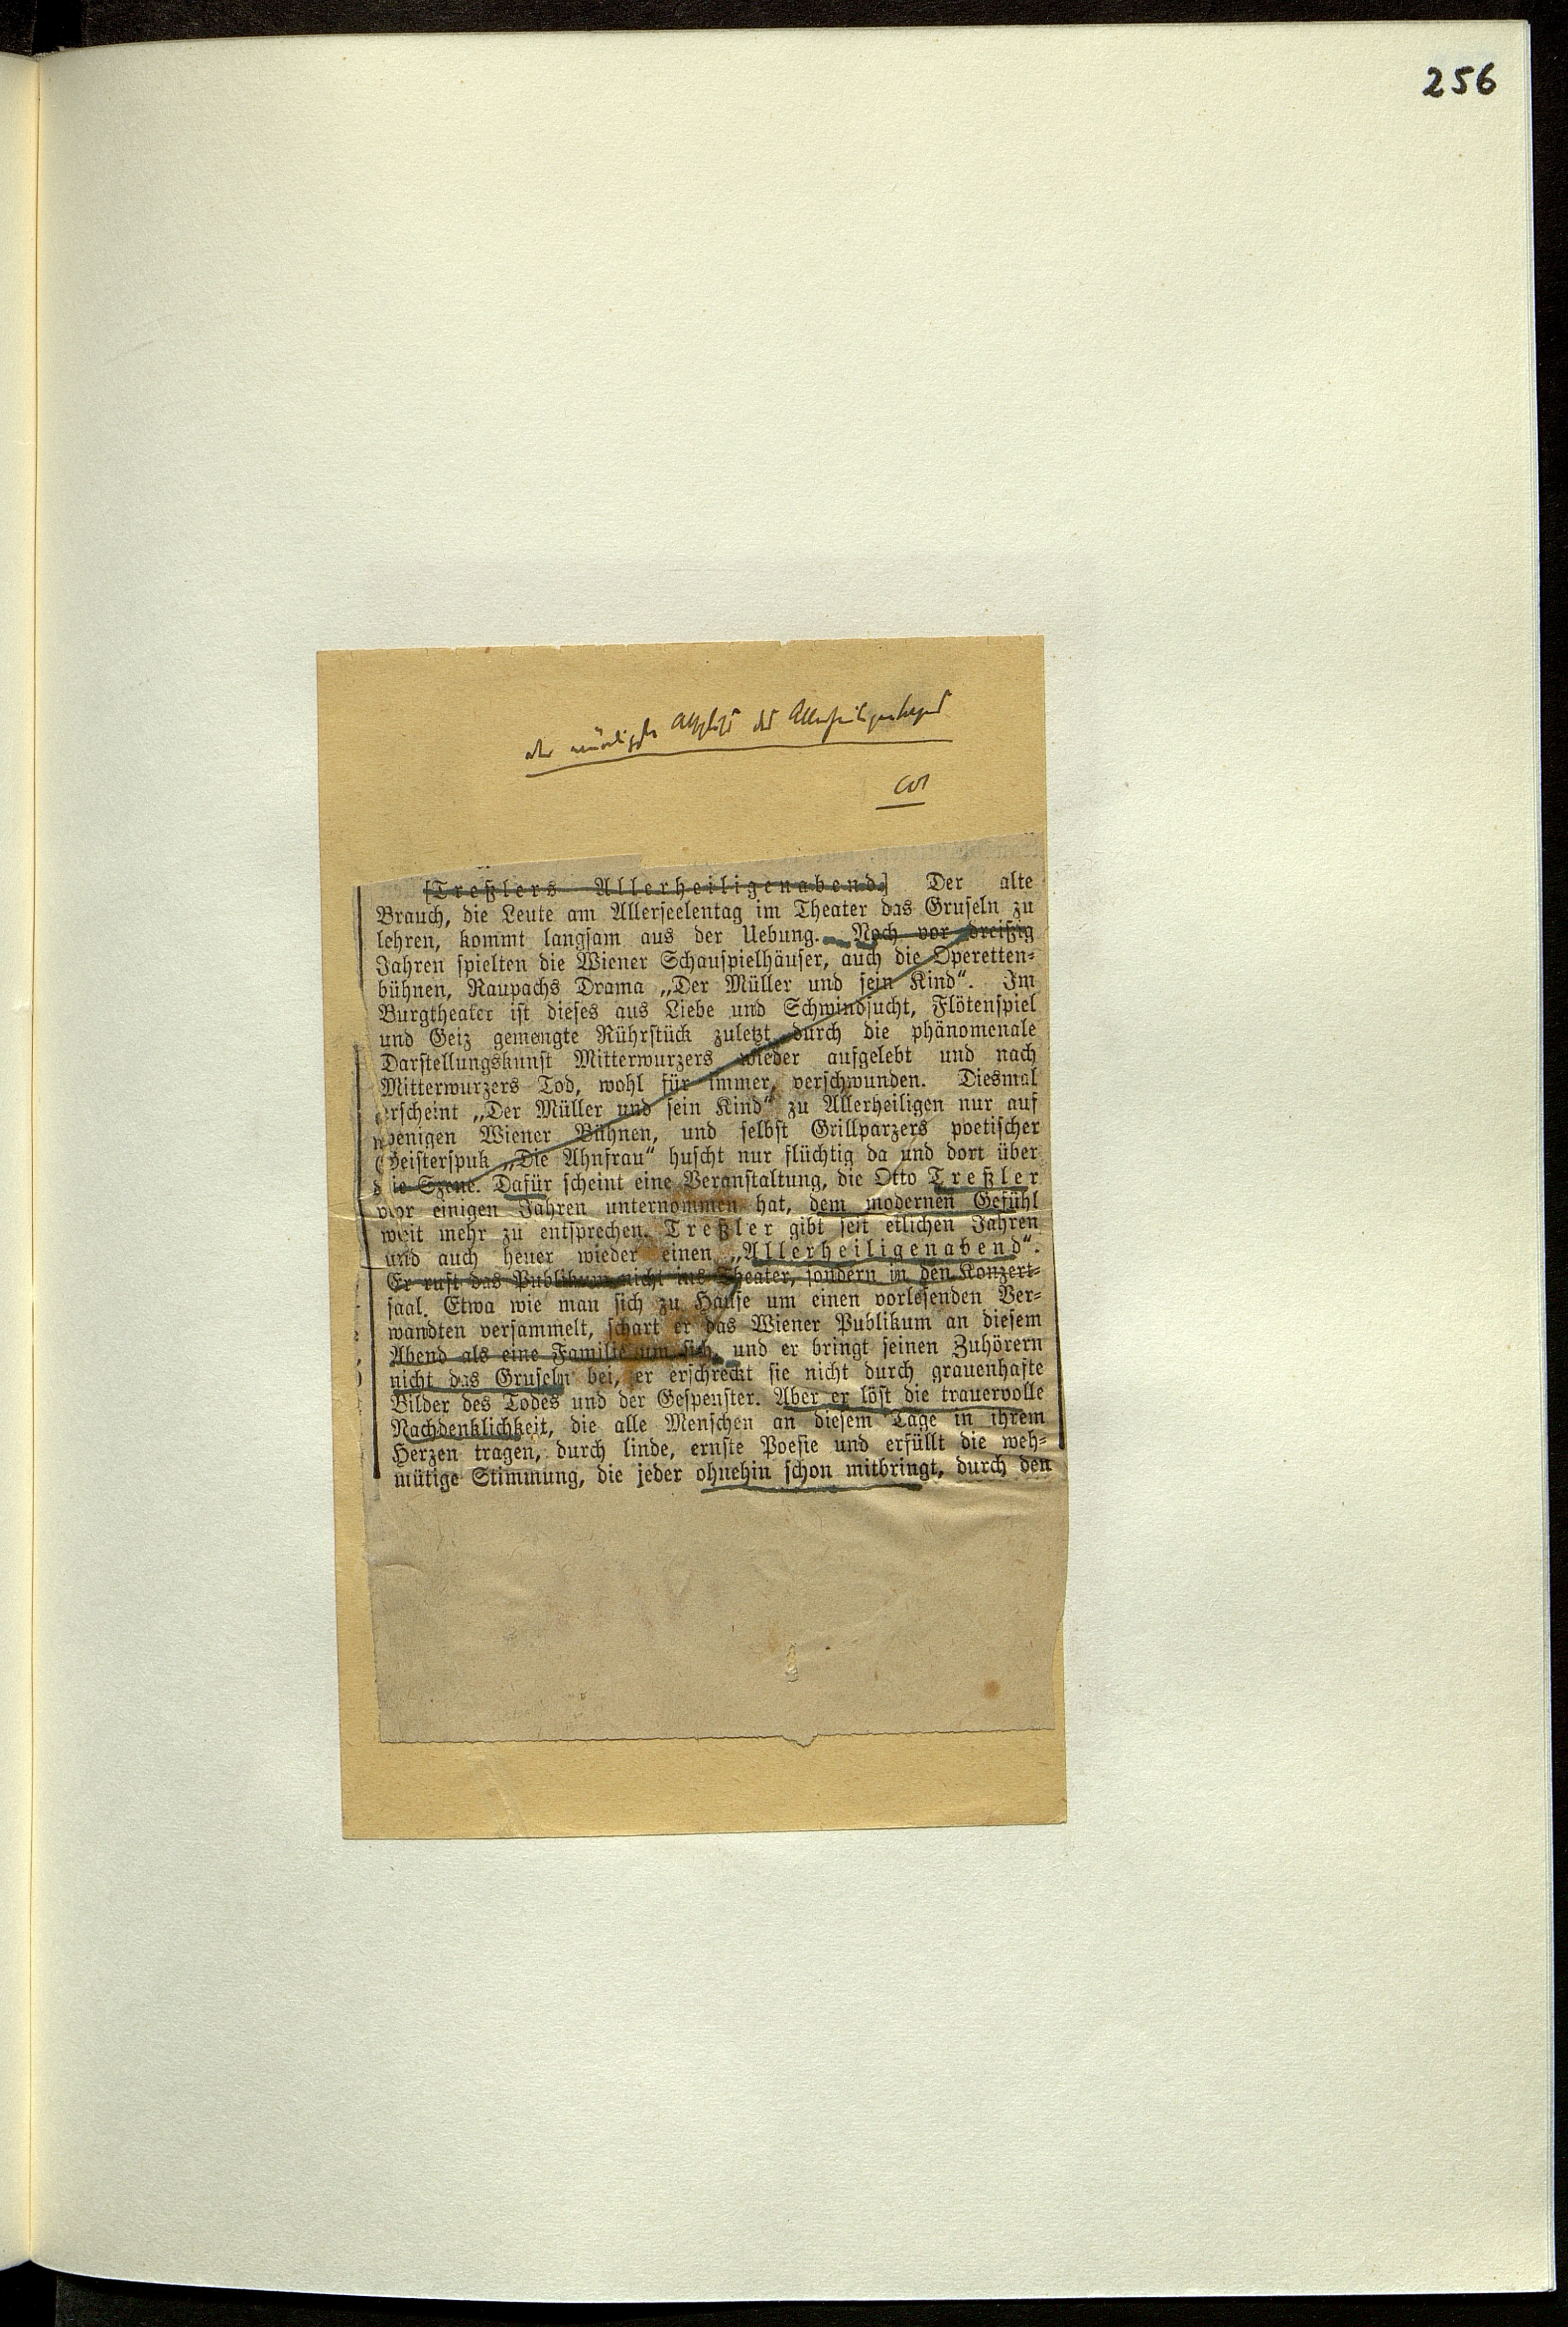 256
[Treßlers Allerheiligenabend.] Der alte
Brauch, die Leute am Allerseelentag im Theater das Gruseln zu
lehren, kommt langsam aus der Uebung. Noch vor dreißig
Jahren spielten die Wiener Schauspielhäuser, auch die Operetten-
bühnen, Raupachs Drama „Der Müller und sein Kind“. Im
Burgtheater ist dieses aus Liebe und Schwindsucht, Flötenspiel
und Geiz gemengte Rührstück zuletzt durch die phänomenale
Darstellungskunst Mitterwurzers wieder aufgelebt und nach
Mitterwurzers Tod, wohl für immer, verschwunden. Diesmal
erscheint „Der Müller und sein Kind“ zu Allerheiligen nur auf
wenigen Wiener Bühnen, und selbst Grillparzers poetischer
Geisterspuk „Die Ahnfrau“ huscht nur flüchtig da und dort über
die Szene. Dafür scheint eine Veranstaltung, die Otto Treßler
vor einigen Jahren unternommen hat, dem modernen Gefühl
weit mehr zu entsprechen. Treßler gibt seit etlichen Jahren
und auch heuer wieder einen „Allerheiligenabend“.
Er ruft das Publikum nicht ins Theater, sondern in den Konzert-
saal. Etwa wie man sich zu Hause um einen vorlesenden Ver-
wandten versammelt, schart er das Wiener Publikum an diesem
Abend als eine Familie um sich, und er bringt seinen Zuhörern
nicht das Gruseln bei, er erschreckt sie nicht durch grauenhafte
Bilder des Todes und der Gespenster. Aber er löst die trauervolle
Nachdenklichkeit, die alle Menschen an diesem Tage in ihrem
Herzen tragen, durch linde, ernste Poesie und erfüllt die weh-
mütige Stimmung, die jeder ohnehin schon mitbringt, durch den